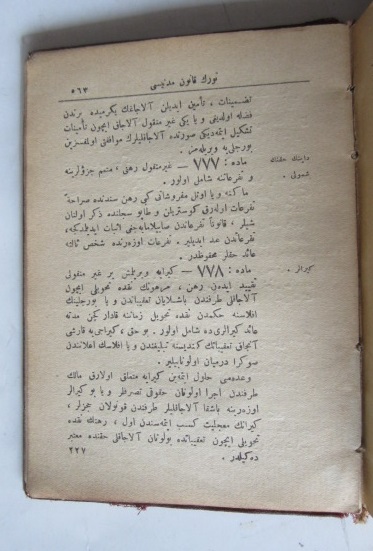 تورك قانون مدنيسى ٥٦٣
تضمينات ، تأمين ايديلن آلاجاغك يكرميده برندن
فضله اوله‌يغى و يا يكى غير منقول آلاجاق ايچون تأمينات
تشكيل ايتمه‌ديكى صورتده آلاجاقليلرك موافقتى اولمقسزين
بورجلى‌يه ويريله‌مز .
دائنك حقنك
شمولى .
ماده : ٧٧٧ — غيرمنقول رهنى ، متمم جزؤلرينه
و تفرعاتنه شامل اولور .
ماكنه و يا اوتل مفروشاتى كبى رهن سندنده صراحةً
تفرعات اوله‌رق كوستريلن و طاپو سجلنده ذكر اولنان
شيلر ، قانوناً تفرعاتدن صاييلاميه‌جغى اثبات ايديلمدكجه ،
تفرعاتدن عد ايديلير . تفرعات اوزرنده شخص ثالثه
عائد حقلر محفوظدر .
كيرالر .
ماده : ٧٧٨ — كيرايه ويريلمش بر غير منقولى
تقييد ايدن رهن ، مرهونك نقده تحويلى ايچون
آلاجاقلى طرفندن باشلايان تعقيباتدن و يا بورجلينك
افلاسنه حكمدن نقده تحويلى زماننه قادار كچن مدته
عائد كيرالرى ده شامل اولور . بو حق ، كيراجى‌يه قارشى
آنجاق تعقيباتك كنديسنه تبليغندن و يا افلاسك اعلانندن
صوكرا درميان اولونابيلير .
وعده‌سى حلول ايتمه‌ين كيرايه متعلق اولارق مالك
طرفندن اجرا اولونان حقوقى تصرفلر و يا بو كيرالر
اوزرينه باشقا آلاجاقليلر طرفندن قونولان حجزلر ،
كيرانك معجليت كسب ايتمه‌سندن اول ، رهنك نقده
تحويلى ايچون تعقيباتده بولونان آلاجاقلى حقنده معتبر
ده‌كيلدر .
٢٢٧